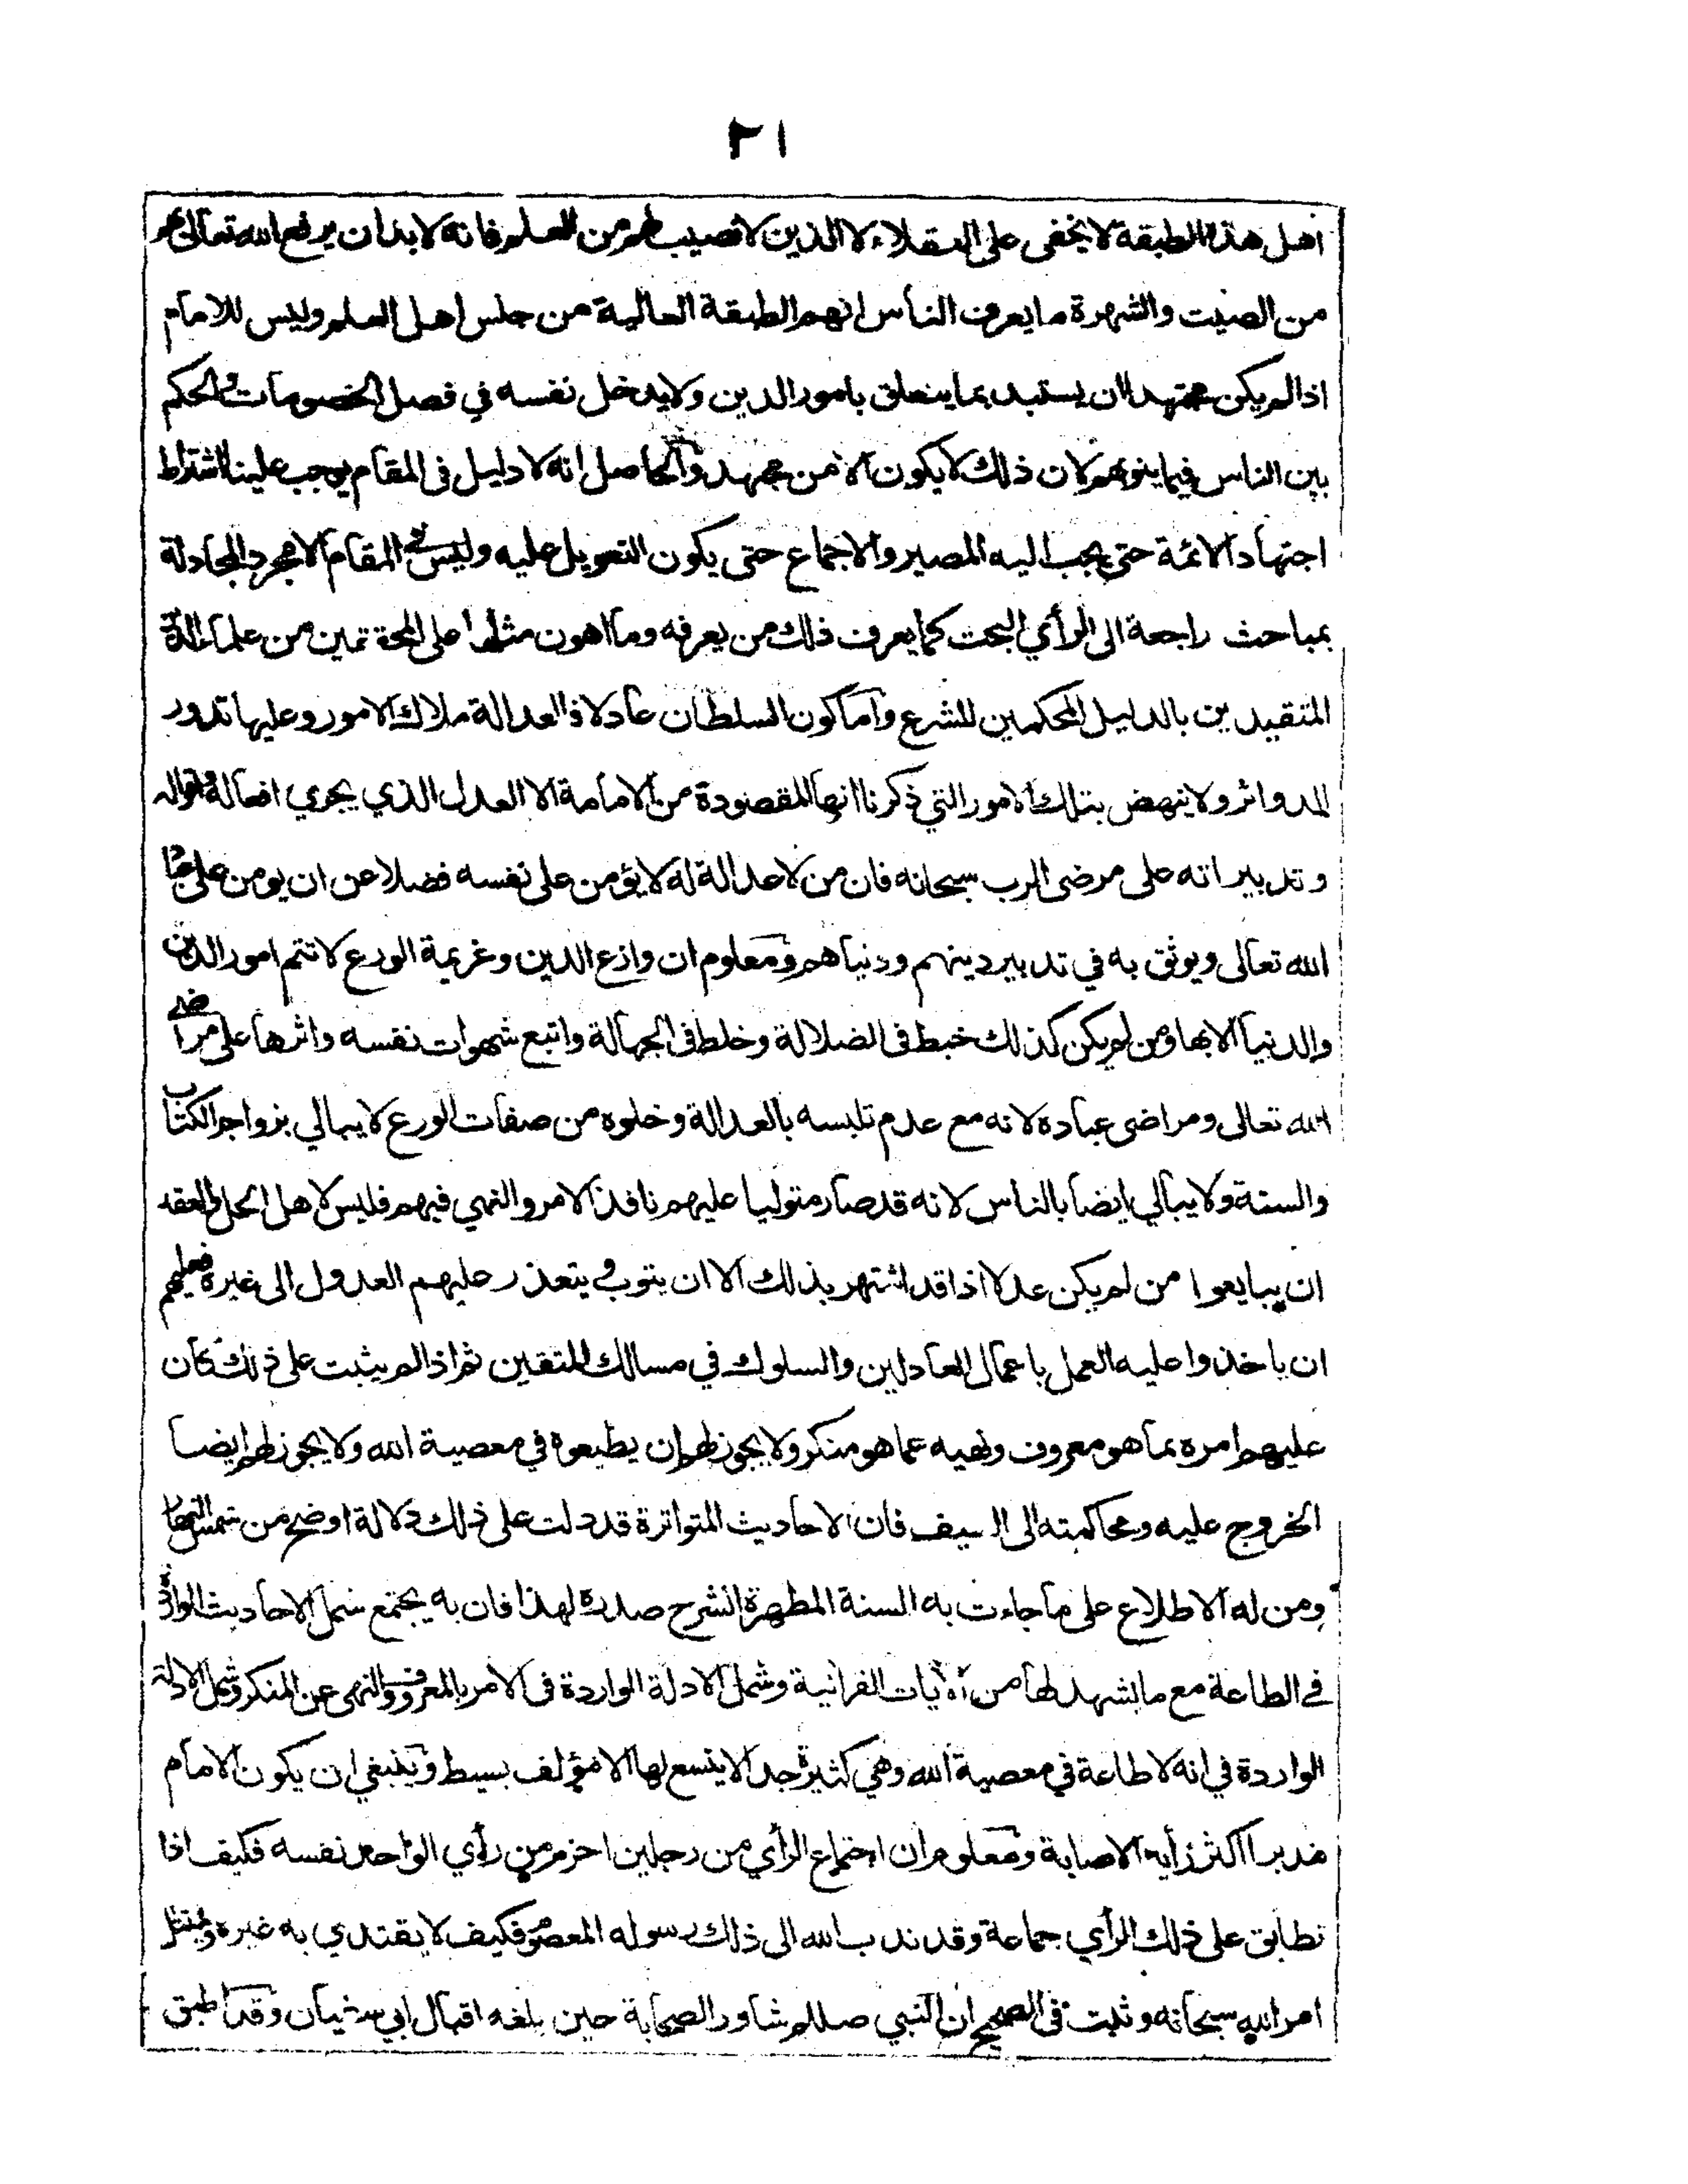 ٢١
اهل هذه الطبقة لا يخفى على العقلاء لا الذين لا نصيب لهم من العلم فانه لا بد ان يرفع الله تعالى لهم
من الصيت والشهرة ما يعرف الناس انهم الطبقة العالية من جلس اهل العلم وليس للامام
اذا لم يكن مجتهدا ان يستبد بما يتعلق بامور الدين ولا يدخل نفسه في فصل الخصومات والحكم
بين الناس فيما ينوبهم لان ذلك لا يكون الا من مجتهد والحاصل انه لا دليل فى المقام يوجب علينا اشتراط
اجتهاد الائمة حتى يجب اليه المصير والاجماع حتى يكون التعويل عليه وليس في المقام الا مجرد المجادلة
بمباحث راجعة الى الرأي البحت كما يعرف ذلك من يعرفه وما اهون مثلها على المحققين من علماء الملة
المتقيدين بالدليل المحكمين للشرع واما كون السلطان عادلا فالعدالة ملاك الامور وعليها تدور
الدوائر ولا ينهض بتلك الامور التي ذكرنا انها المقصودة من الامامة الا العدل الذي يجري افعاله واقواله
وتدبيراته على مرضى الرب سبحانه فان من لا عدالة له لا يؤمن على نفسه فضلا عن ان يومن على عباد
الله تعالى ويوثق به في تدبير دينهم ودنياهم ومعلوم ان وازع الدين وعزيمة الورع لا تتم امور الدين
والدنيا الا بها ومن لم يكن كذلك خبط فى الضلالة وخلط فى الجهالة واتبع شهوات نفسه واثرها على مراضي
الله تعالى ومراضى عباده لانه مع عدم تلبسه بالعدالة وخلوه من صفات الورع لا يبالي بزواجر الكتاب
والسنة ولا يبالي ايضا بالناس لانه قد صار متوليا عليهم نافذ الامر والنهي فيهم فليس لاهل الحل والعقد
ان يبايعوا من لم يكن عدلا اذا قد اشتهر بذلك الا ان يتوب ويتعذر عليهم العدول الى غيره فعليهم
ان ياخذوا عليه العمل باعمال العادلين والسلوك في مسالك المتقين ثم اذا لم يثبت على ذلك كان
عليهم امره بما هو معروف ونهيه عما هو منكر ولا يجوز لهم ان يطيعوه في معصية الله ولا يجوز لهم ايضا
الخروج عليه ومحاكمته الى السيف فان الاحاديث المتواترة قد دلت على ذلك دلالة اوضح من شمس النهار
ومن له الاطلاع على ما جاءت به السنة المطهرة انشرح صدره لهذا فان به يجتمع شمل الاحاديث الواردة
في الطاعة مع ما يشهد لها من الآيات القرانية وشمل الادلة الواردة فى الامر بالمعروف والنهى عن المنكر وشمل الادلة
الواردة في انه لا طاعة في معصية الله وهي كثيرة جدا لا يتسع لها الا مؤلف بسيط وينبغي ان يكون الامام
مدبرا اكثر رأيه الاصابة ومعلوم ان اجتماع الرأي من رجلين احزم من رأي الواحد نفسه فكيف اذا
تطابق على ذلك الرأي جماعة وقد ندب الله الى ذلك رسوله المعصوم فكيف لا يقتدي به غيره ويمتثل
امر الله سبحانه وثبت فى الصحيح ان النبي صللم شاور الصحابة حين بلغه اقبال ابي سفيان وقد اطبق